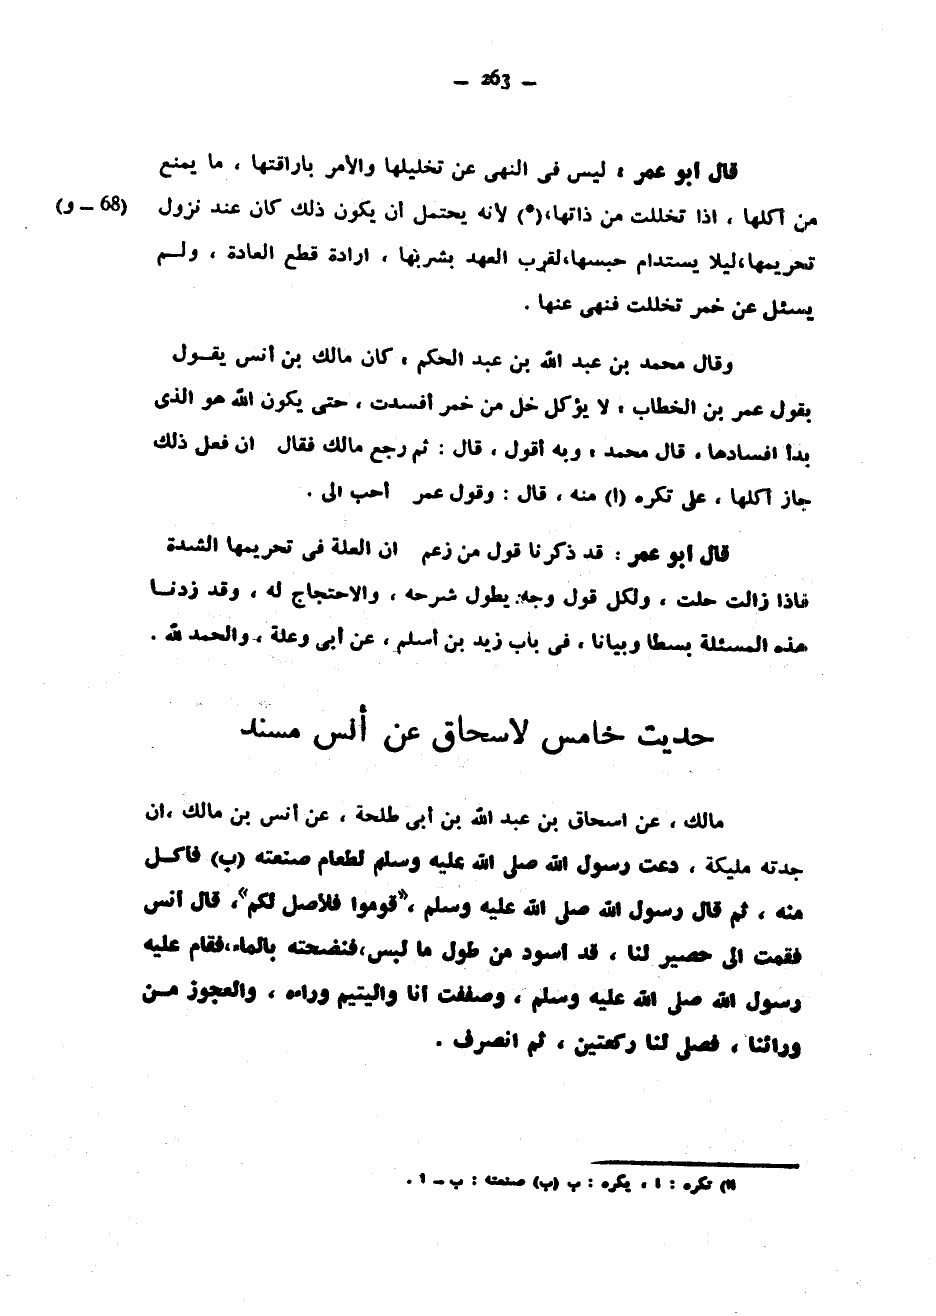 – 263 –
قال أبو عمر : ليس فى النهى عن تخليلها والأمر باراقتها ، ما يمنع
من أكلها ، اذا تخللت من ذاتها،(*) لأنه يحتمل أن يكون ذلك كان عند نزول (68 – و)
تحريمها،ليلا يستدام حبسها،لقرب العهد بشربها ، ارادة قطع العادة ، ولم
يسئل عن خمر تخللت فنهى عنها .
وقال محمد بن عبد الله بن عبد الحكم ، كان مالك بن أنس يقول
بقول عمر بن الخطاب ، لا يؤكل خل من خمر أفسدت ، حتى يكون الله هو الذى
بدأ افسادها ، قال محمد ، وبه أقول ، قال : ثم رجع مالك فقال ان فعل ذلك
جاز أكلها ، على تكره (ا) منه ، قال : وقول عمر أحب الى .
قال أبو عمر : قد ذكرنا قول من زعم ان العلة فى تحريمها الشدة
فاذا زالت حلت ، ولكل قول وجه يطول شرحه ، والاحتجاج له ، وقد زدنا
هذه المسئلة بسطا وبيانا ، فى باب زيد بن أسلم ، عن أبى وعلة ، والحمد لله .
حديث خامس لاسحاق عن أنس مسند
مالك ، عن اسحاق بن عبد الله بن أبى طلحة ، عن أنس بن مالك ،ان
جدته مليكة ، دعت رسول الله صلى الله عليه وسلم لطعام صنعته (ب) فأكل
منه ، ثم قال رسول الله صلى الله عليه وسلم ،«قوموا فلأصل لكم»، قال أنس
فقمت الى حصير لنا ، قد اسود من طول ما لبس،فنضحته بالماء،فقام عليه
رسول الله صلى الله عليه وسلم ، وصففت أنا واليتيم وراءه ، والعجوز من
ورائنا ، فصلى لنا ركعتين ، ثم انصرف .
(ا) تكره : ا ، يكره : ب (ب) صنعته : ب – ا .